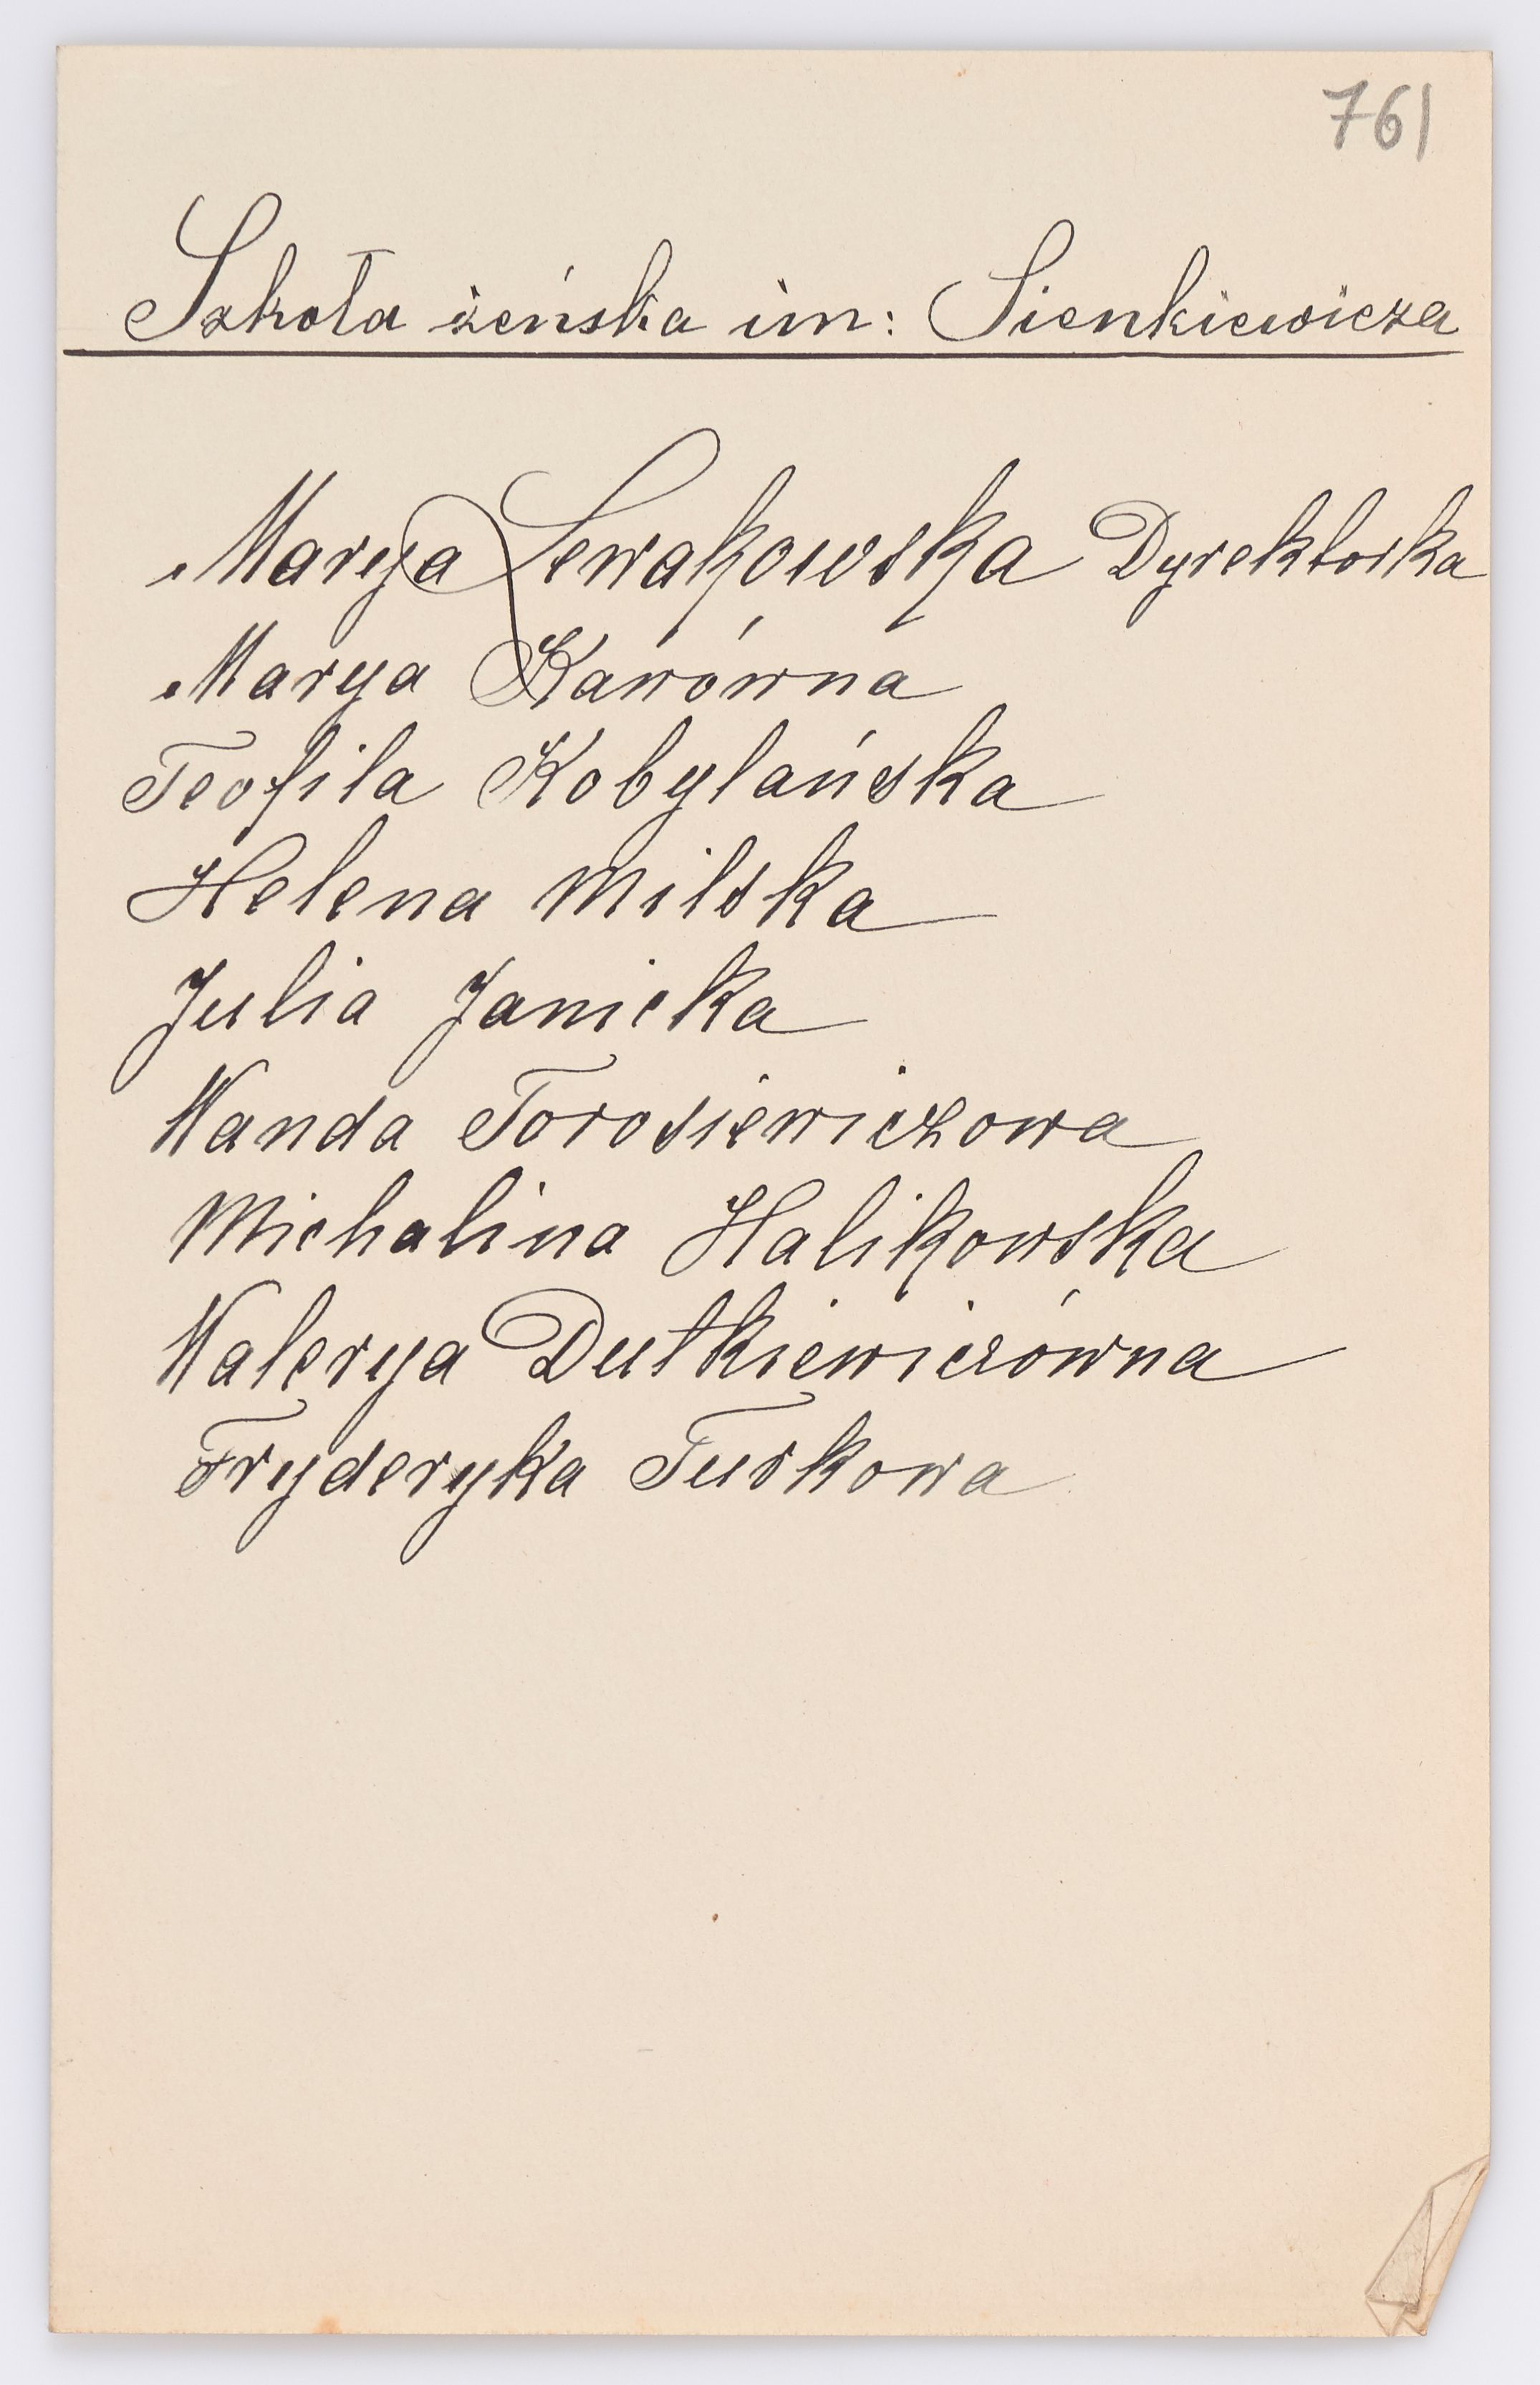 761
Szkoła żeńska im: Sienkiewicza
Marya Lewakowska Dyrektorka
Marya Kawówna
Teofila Kobylańska
Helena Milska
Julia Janicka
Wanda Torosiewiczowa
Michalina Halikowska
Walerya Dutkiewiczówna
Fryderyka Turkowa